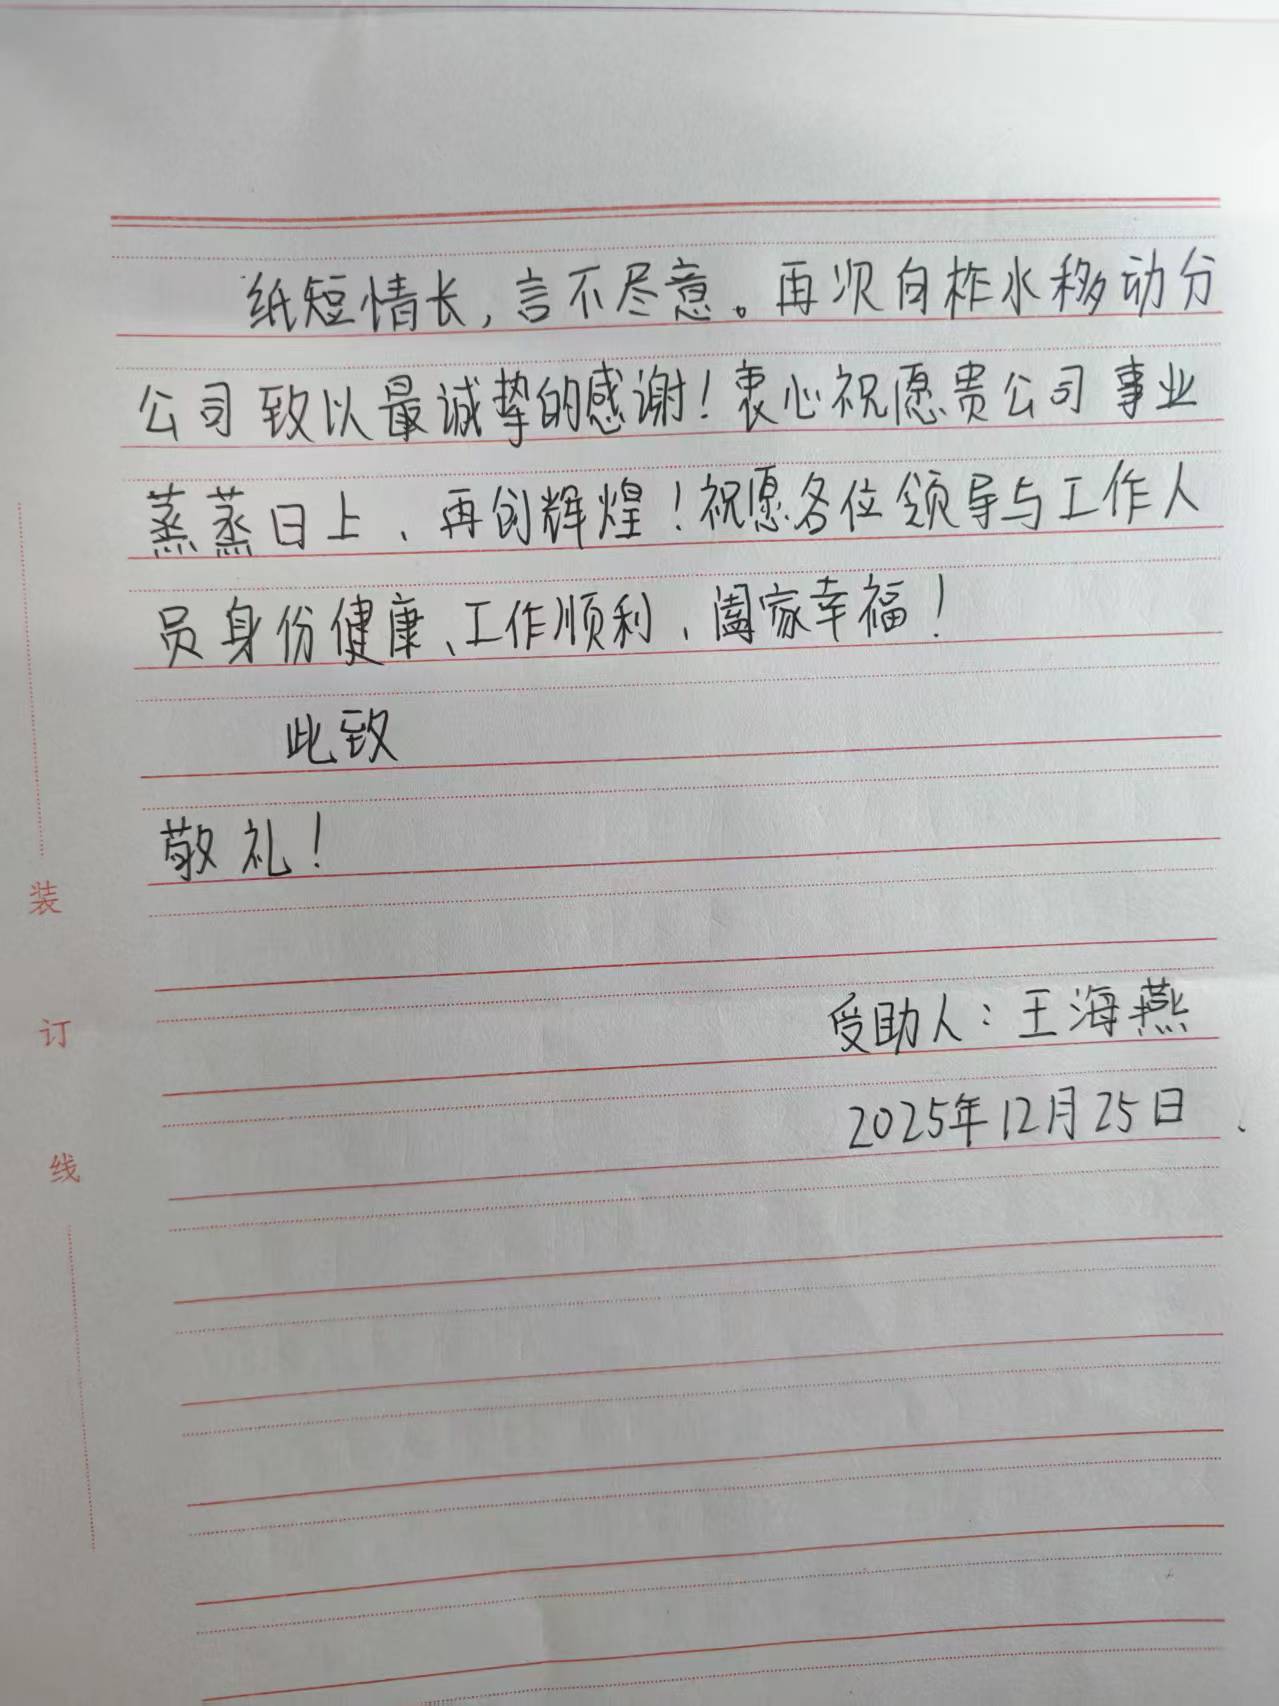 纸短情长，言不尽意。再次向柞水移动分
公司致以最诚挚的感谢！衷心祝愿贵公司事业
蒸蒸日上、再创辉煌！祝愿各位领导与工作人
员身份健康、工作顺利、阖家幸福！
此致
敬礼！
受助人：王海燕
2025年12月25日
装
订
线